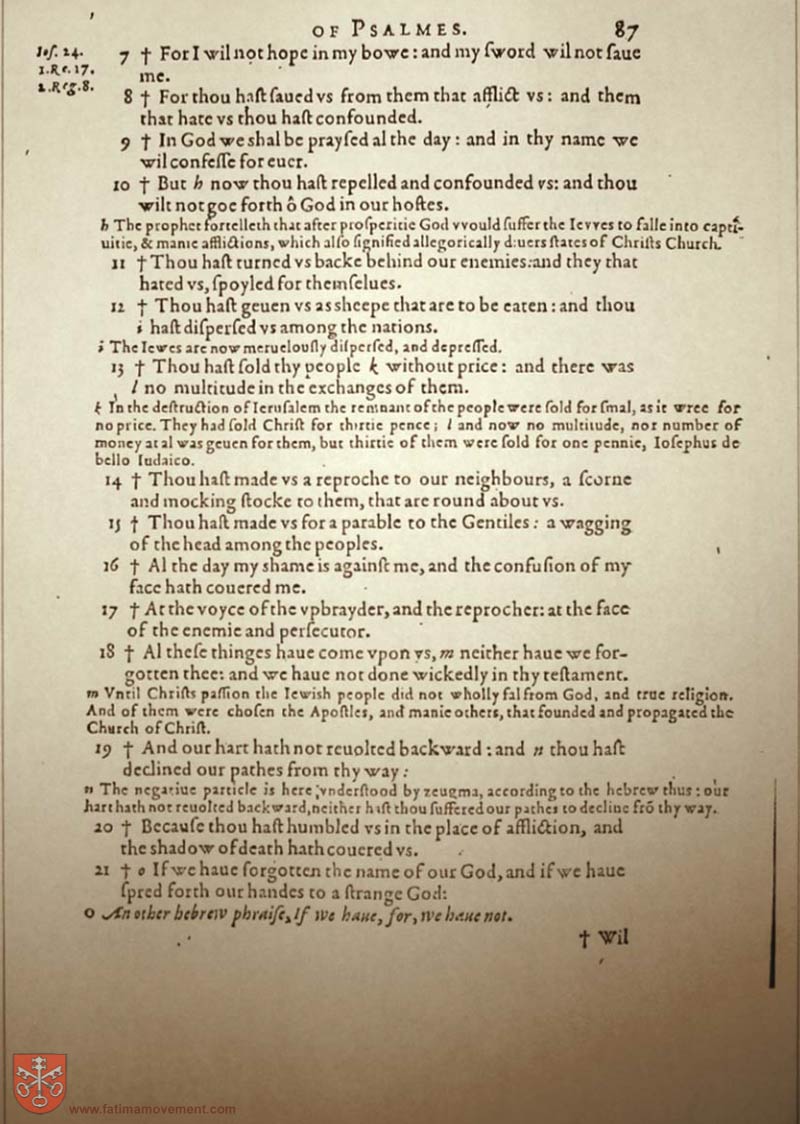 OF PSALMES. 87
Ios. 24.
1. Re. 17.
2. Reg. 8.
7 † For I wil not hope in my bowe: and my ſword wil not ſaue
me.
8 † For thou haſt ſaued vs from them that afflict vs: and them
that hate vs thou haſt confounded.
9 † In God we shal be prayſed al the day: and in thy name we
wil confeſſe for euer.
10 † But h now thou haſt repelled and confounded vs: and thou
wilt not goe forth ô God in our hoſtes.
h The prophet fortelleth that after proſperitie God vvould ſuffer the Ievves to falle into capti-
uitie, & manie afflictions, which alſo ſignified allegorically diuers ſtates of Chriſts Church.
11 † Thou haſt turned vs backe behind our enemies: and they that
hated vs, ſpoyled for themſelues.
12 † Thou haſt geuen vs as sheepe that are to be eaten: and thou
i haſt diſperſed vs among the nations.
i The Iewes are now merueloufly diſperſed, and depreſſed.
13 † Thou haſt ſold thy people k without price: and there was
l no multitude in the exchanges of them.
k In the deſtruction of Ieruſalem the remnant of the people were ſold for ſmal, as it wree for
no price. They had ſold Chriſt for thirtie pence; l and now no multitude, nor number of
money at al was geuen for them, but thirtie of them were ſold for one pennie, Ioſephus de
bello Iudaico.
14 † Thou haſt made vs a reproche to our neighbours, a ſcorne
and mocking ſtocke to them, that are round about vs.
15 † Thou haſt made vs for a parable to the Gentiles: a wagging
of the head among the peoples.
16 † Al the day my shame is againſt me, and the confuſion of my
face hath couered me.
17 † At the voyce of the vpbrayder, and the reprocher: at the face
of the enemie and perſecutor.
18 † Al theſe thinges haue come vpon vs, m neither haue we for-
gotten thee: and we haue not done wickedly in thy teſtament.
m Vntil Chriſts paſſion the Iewish people did not wholly fal from God, and true religion.
And of them were choſen the Apoſtles, and manie others, that founded and propagated the
Church of Chriſt.
19 † And our hart hath not reuolted backward: and n thou haſt
declined our pathes from thy way:
n The negatiue particle is here vnderſtood by zeugma, according to the hebrew thus: our
hart hath not reuolted backward, neither haſt thou ſuffered our pathes to decline frõ thy way.
20 † Becauſe thou haſt humbled vs in the place of affliction, and
the shadow of death hath couered vs.
21 † o If we haue forgotten the name of our God, and if we haue
ſpred forth our handes to a ſtrange God:
o An other hebrew phraiſe, If we haue, for, we haue not.
† Wil
www.fatimamovement.com